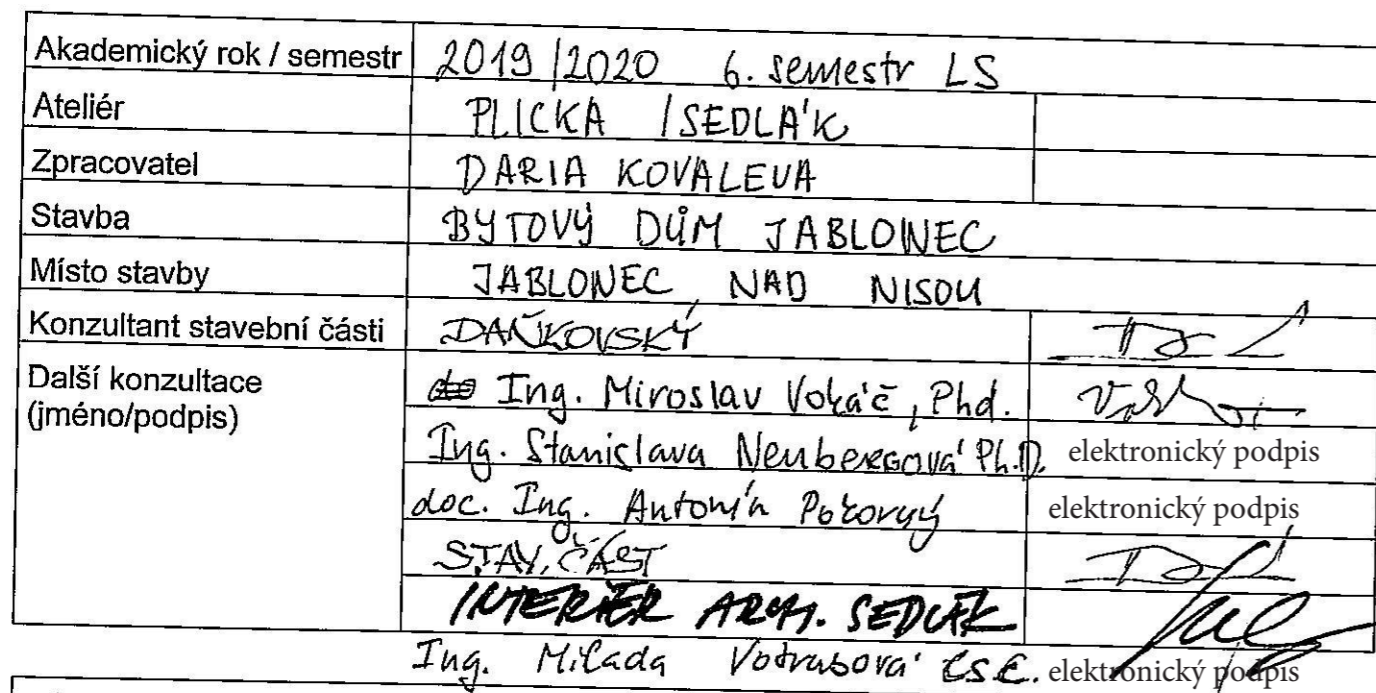 Akademický rok / semestr 2019/2020 6. semestr LS
Ateliér PLICKA / SEDLÁK
Zpracovatel DARIA KOVALEVA
Stavba BYTOVÝ DŮM JABLONEC
Místo stavby JABLONEC NAD NISOU
Konzultant stavební části DAŇKOVSKÝ
Další konzultace Ing. Miroslav Vokáč, Phd.
(jméno/podpis)
Ing. Stanislava Neubergová Ph.D. elektronický podpis
doc. Ing. Antonín Pokorný elektronický podpis
STAV. ČÁST
INTERIÉR ARCH. SEDLÁK
Ing. Milada Votrubová CSc. elektronický podpis